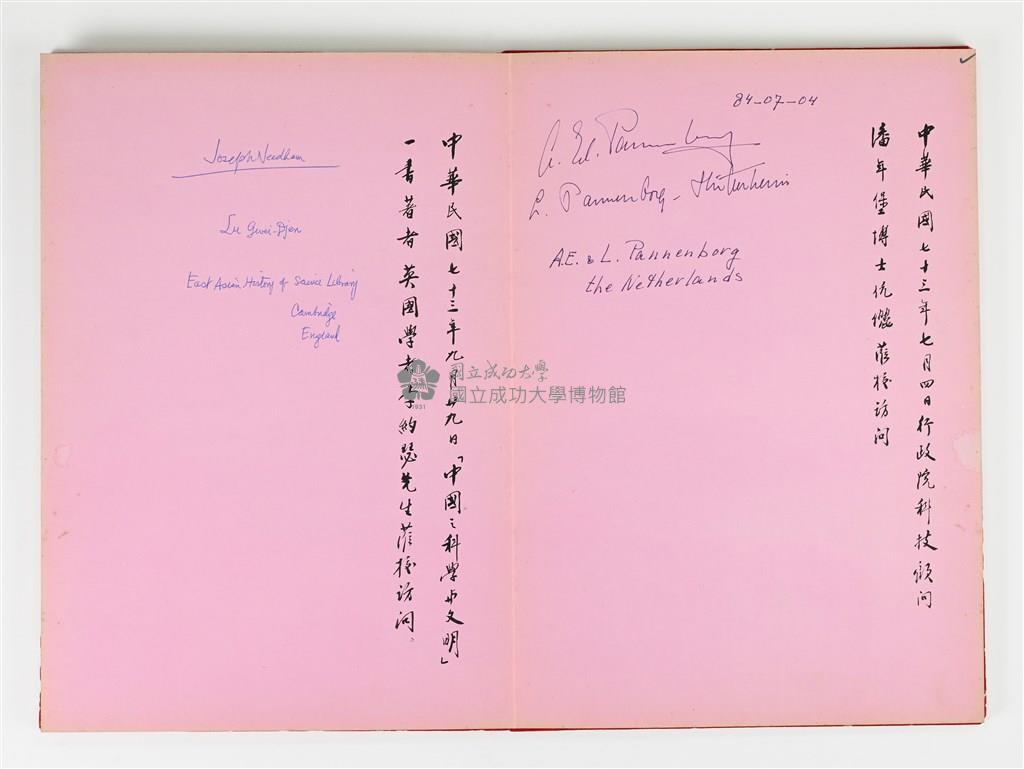 84-07-04
中華民國七十三年七月四日行政院科技顧問
潘年堡博士伉儷蒞校訪問
A. Ed. Pannenborg
L. Pannenborg -
A.E. & L. Pannenborg
the Netherlands
中華民國七十三年九月廿九日「中國之科學與文明」
一書著者英國學者李約瑟先生蒞校訪問
Joseph Needham
Lu Gwei-Djen
East Asian History of Science Library
Cambridge
England
國立成功大學
國立成功大學博物館
1931